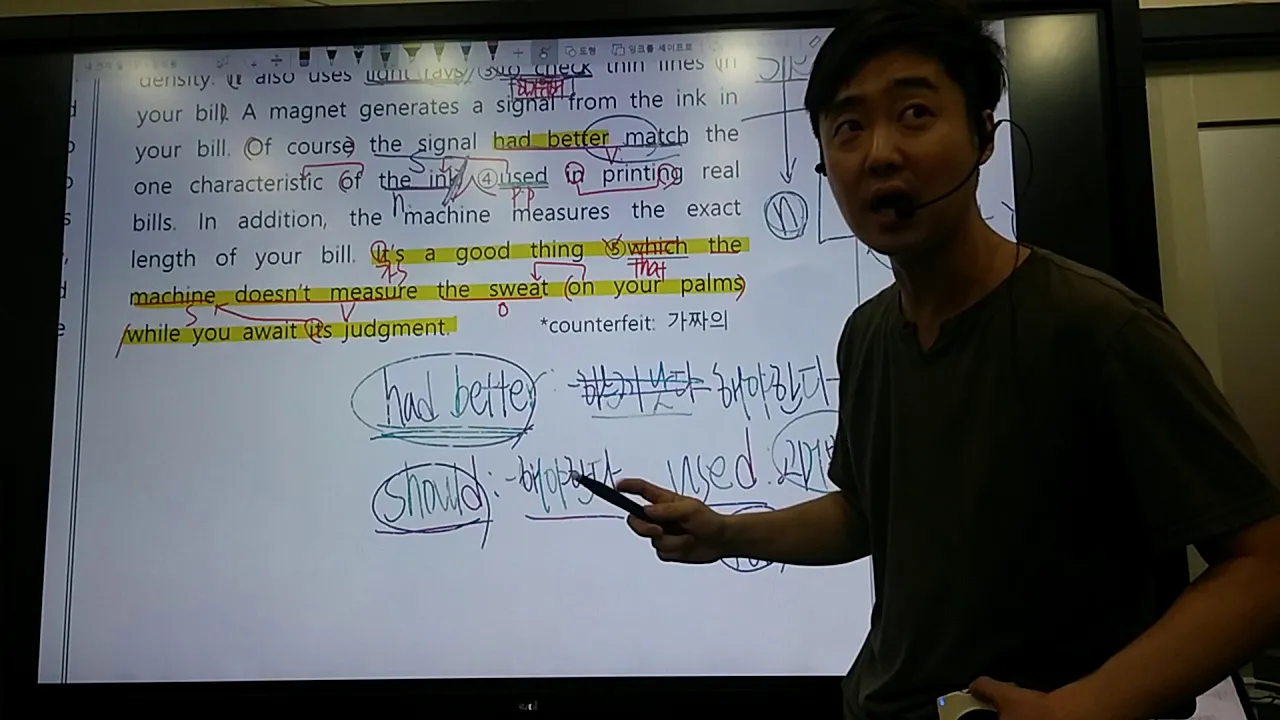 도형 잉크를 셰이프로
density. It also uses light rays ③to check thin lines in
your bill. A magnet generates a signal from the ink in
your bill. Of course the signal had better match the
one characteristic of the ink ④used in printing real
p.p
bills. In addition, the machine measures the exact
n
length of your bill. It's a good thing ⑤which the
that
machine doesn't measure the sweat on your palms
S V O
while you await its judgment.
*counterfeit: 가짜의
had better: 해야한다
should: ~해야한다 used:
n